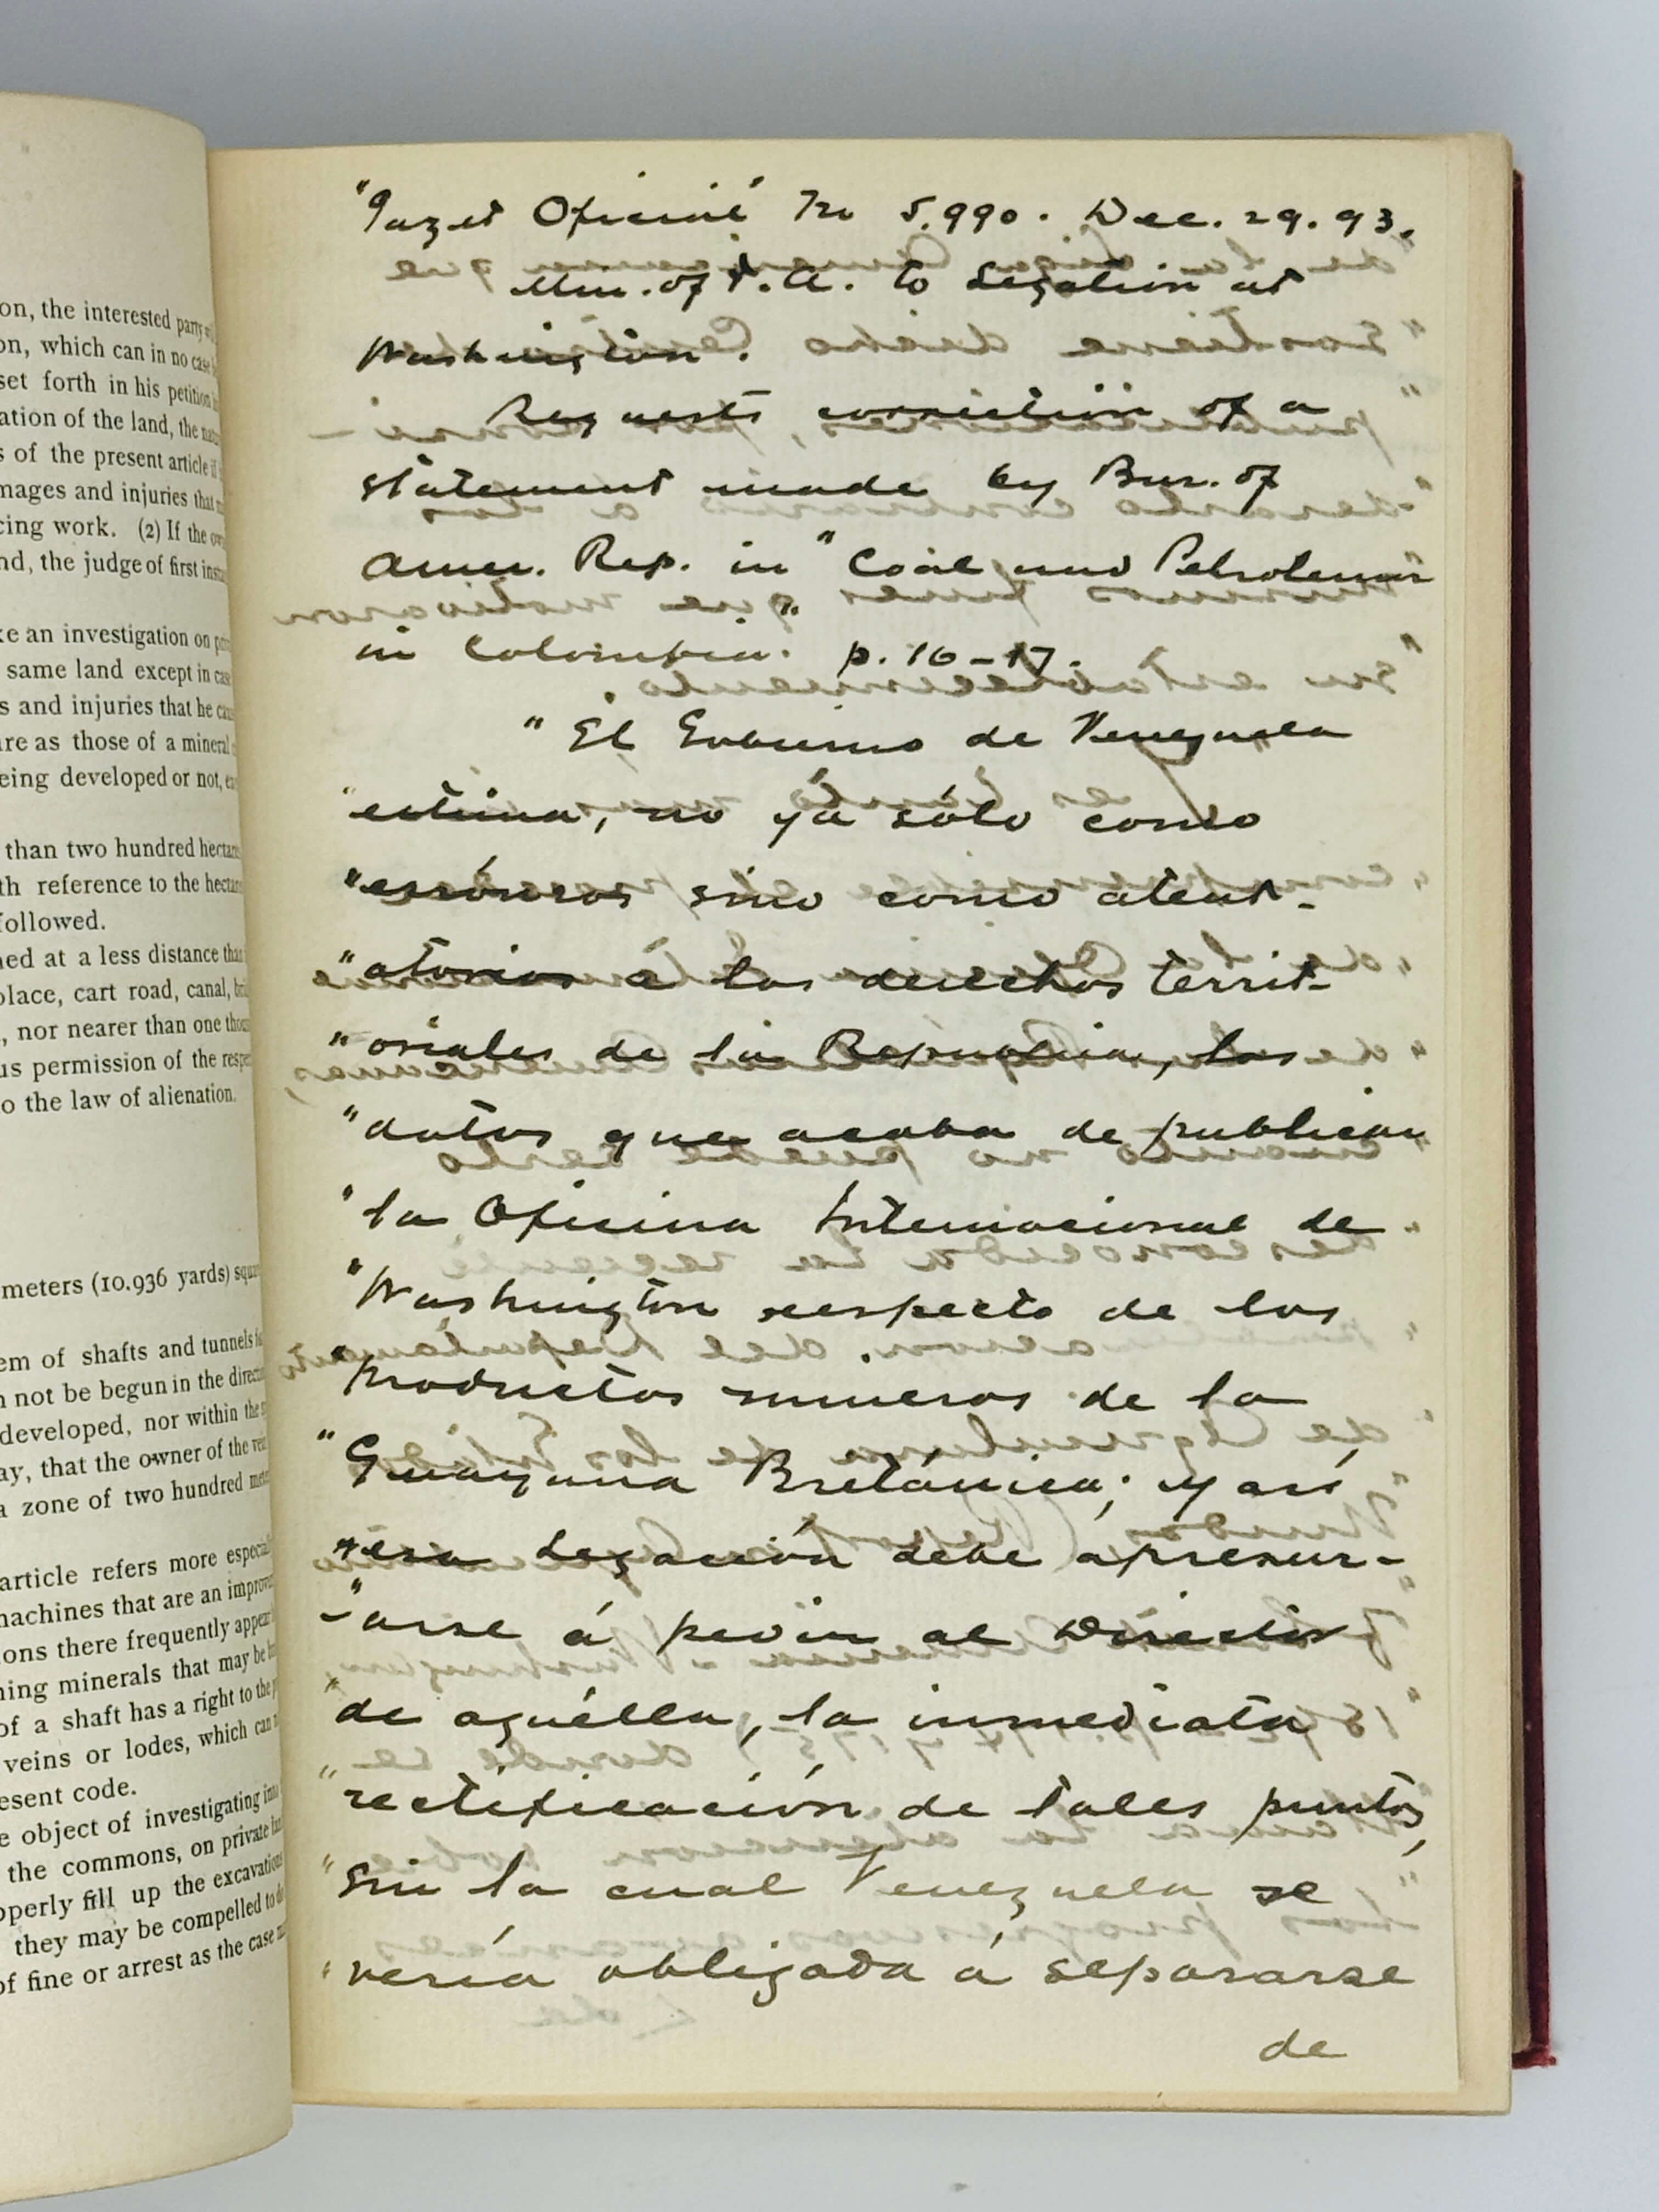 on, the interested party
on, which can in no case
set forth in his petition
ation of the land, the
s of the present article
mages and injuries that
cing work. (2) If the
nd, the judge of first
ke an investigation on
same land except in case
s and injuries that he
are as those of a mineral
eing developed or not,
than two hundred
th reference to the
followed.
ned at a less distance than
place, cart road, canal,
, nor nearer than one
us permission of the
o the law of alienation.
meters (10.936 yards)
em of shafts and tunnels
n not be begun in the
developed, nor within the
ay, that the owner of the
a zone of two hundred
article refers more
machines that are an
ions there frequently
ning minerals that may be
of a shaft has a right to the
veins or lodes, which can
esent code.
e object of investigating
the commons, on private
operly fill up the
they may be compelled to
of fine or arrest as the case
"Gazet Oficial" No 5.990. Dec. 29. 93.
Min. of F. A. to Legation at
Washington.
Requests correction of a
statement made by Bur. of
Amer. Rep. in "Coal and Petroleum
in Colombia." p. 16-17.
"El Gobierno de Venezuela
"estima, no yá sólo como
"erróneos sino como atent-
"atorios á los derechos territ-
"oriales de la Republica, los
"datos que acaba de publicar
"la Oficina Internacional de
"Washington respecto de los
"productos mineros de la
"Guayana Británica; y así
"esa Legación debe apresur-
-"arse á pedir al Director
"de aquélla, la inmediata
"rectificación de tales puntos,
"sin la cual Venezuela se
"vería obligada á separarse
de